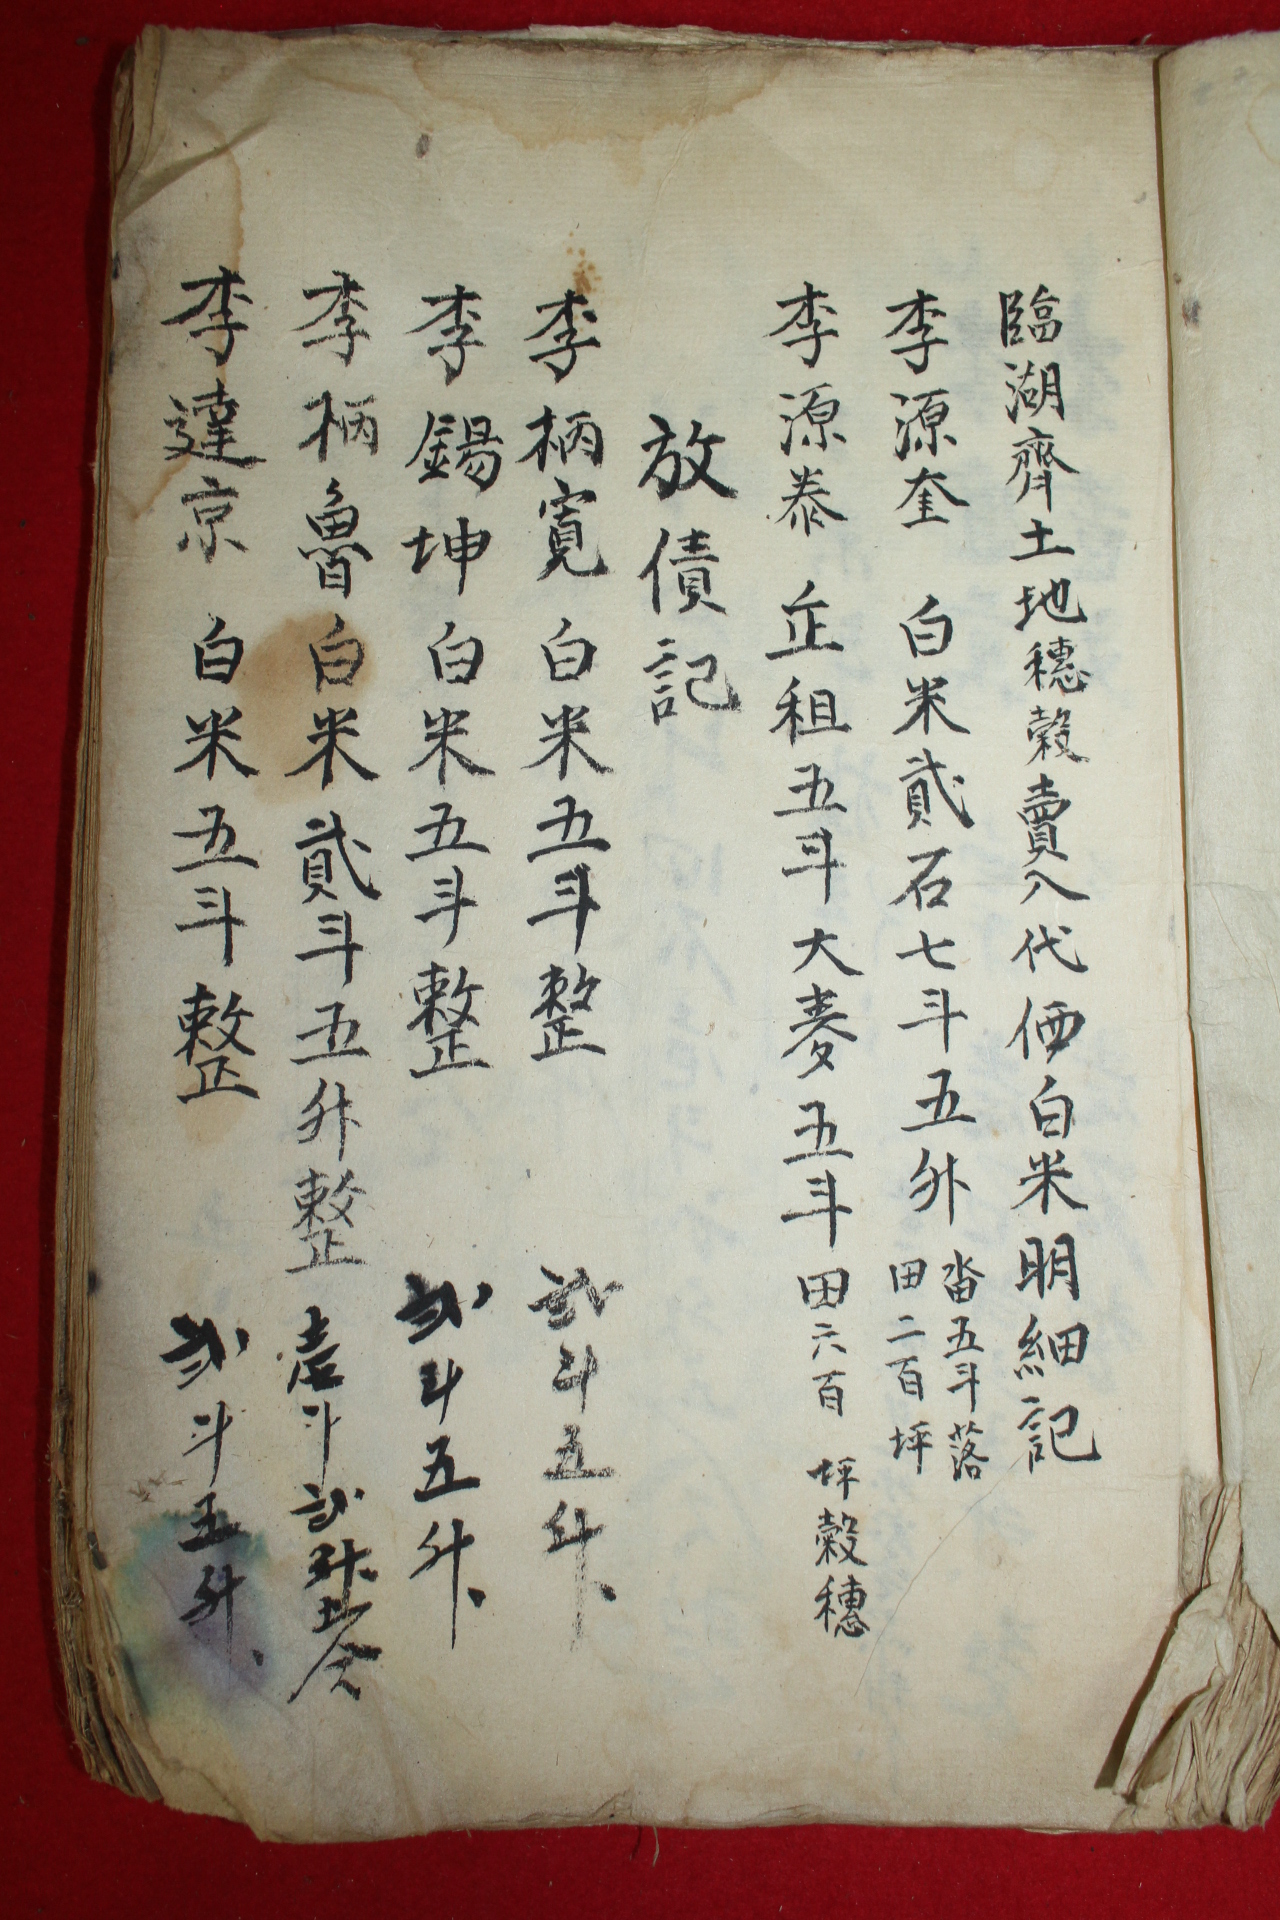 臨湖齊土地穗穀賣入代価白米明細記
李源奎 白米貳石七斗五升 畓五斗落
田二百坪
李源泰 正租五斗大麥五斗 田六百坪穀穗
放債記
李柄寬 白米五斗整 弐斗五升、
李錫坤 白米五斗整 弐斗五升、
李柄魯 白米貳斗五升整 壱斗弐升五合
李達京 白米五斗整 弐斗五升、